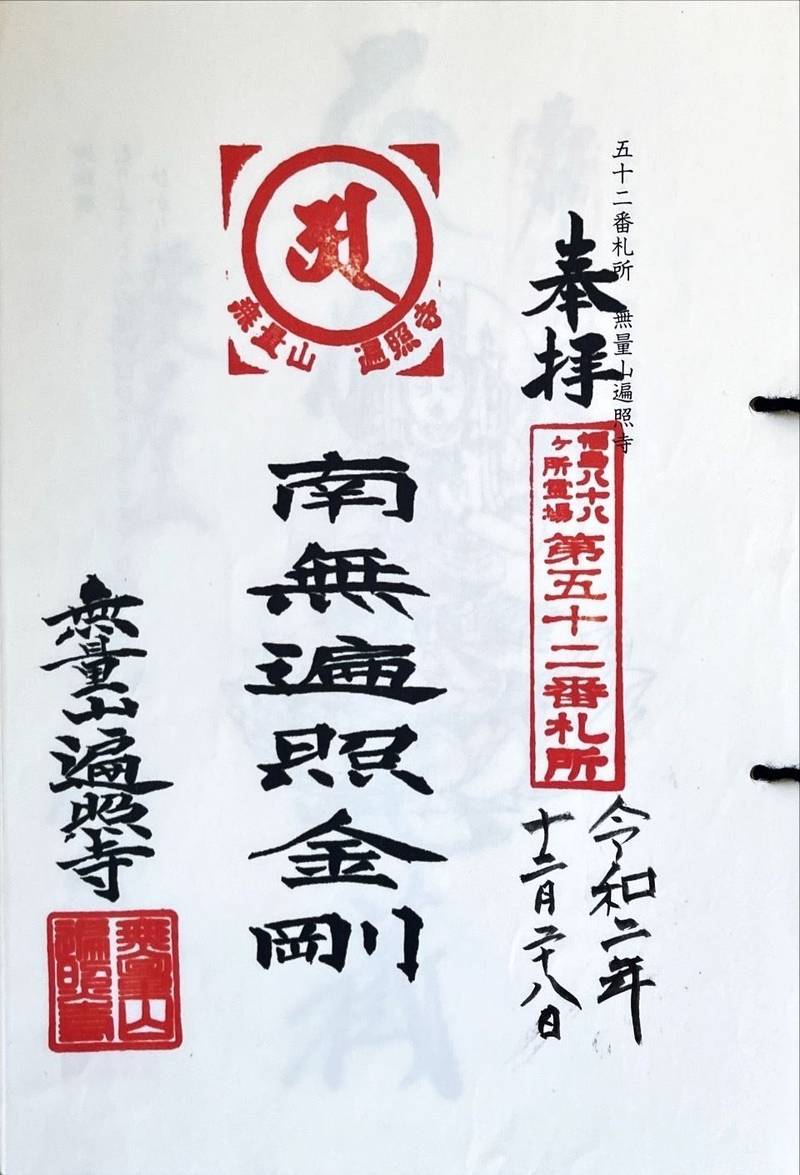 五十二番札所　無量山遍照寺
奉拝
福島八十八
ヶ所霊場
第五十二番札所
令和二年
十二月二十八日
無量山　遍照寺
南無遍照金剛
無量山遍照寺
無量山
遍照寺